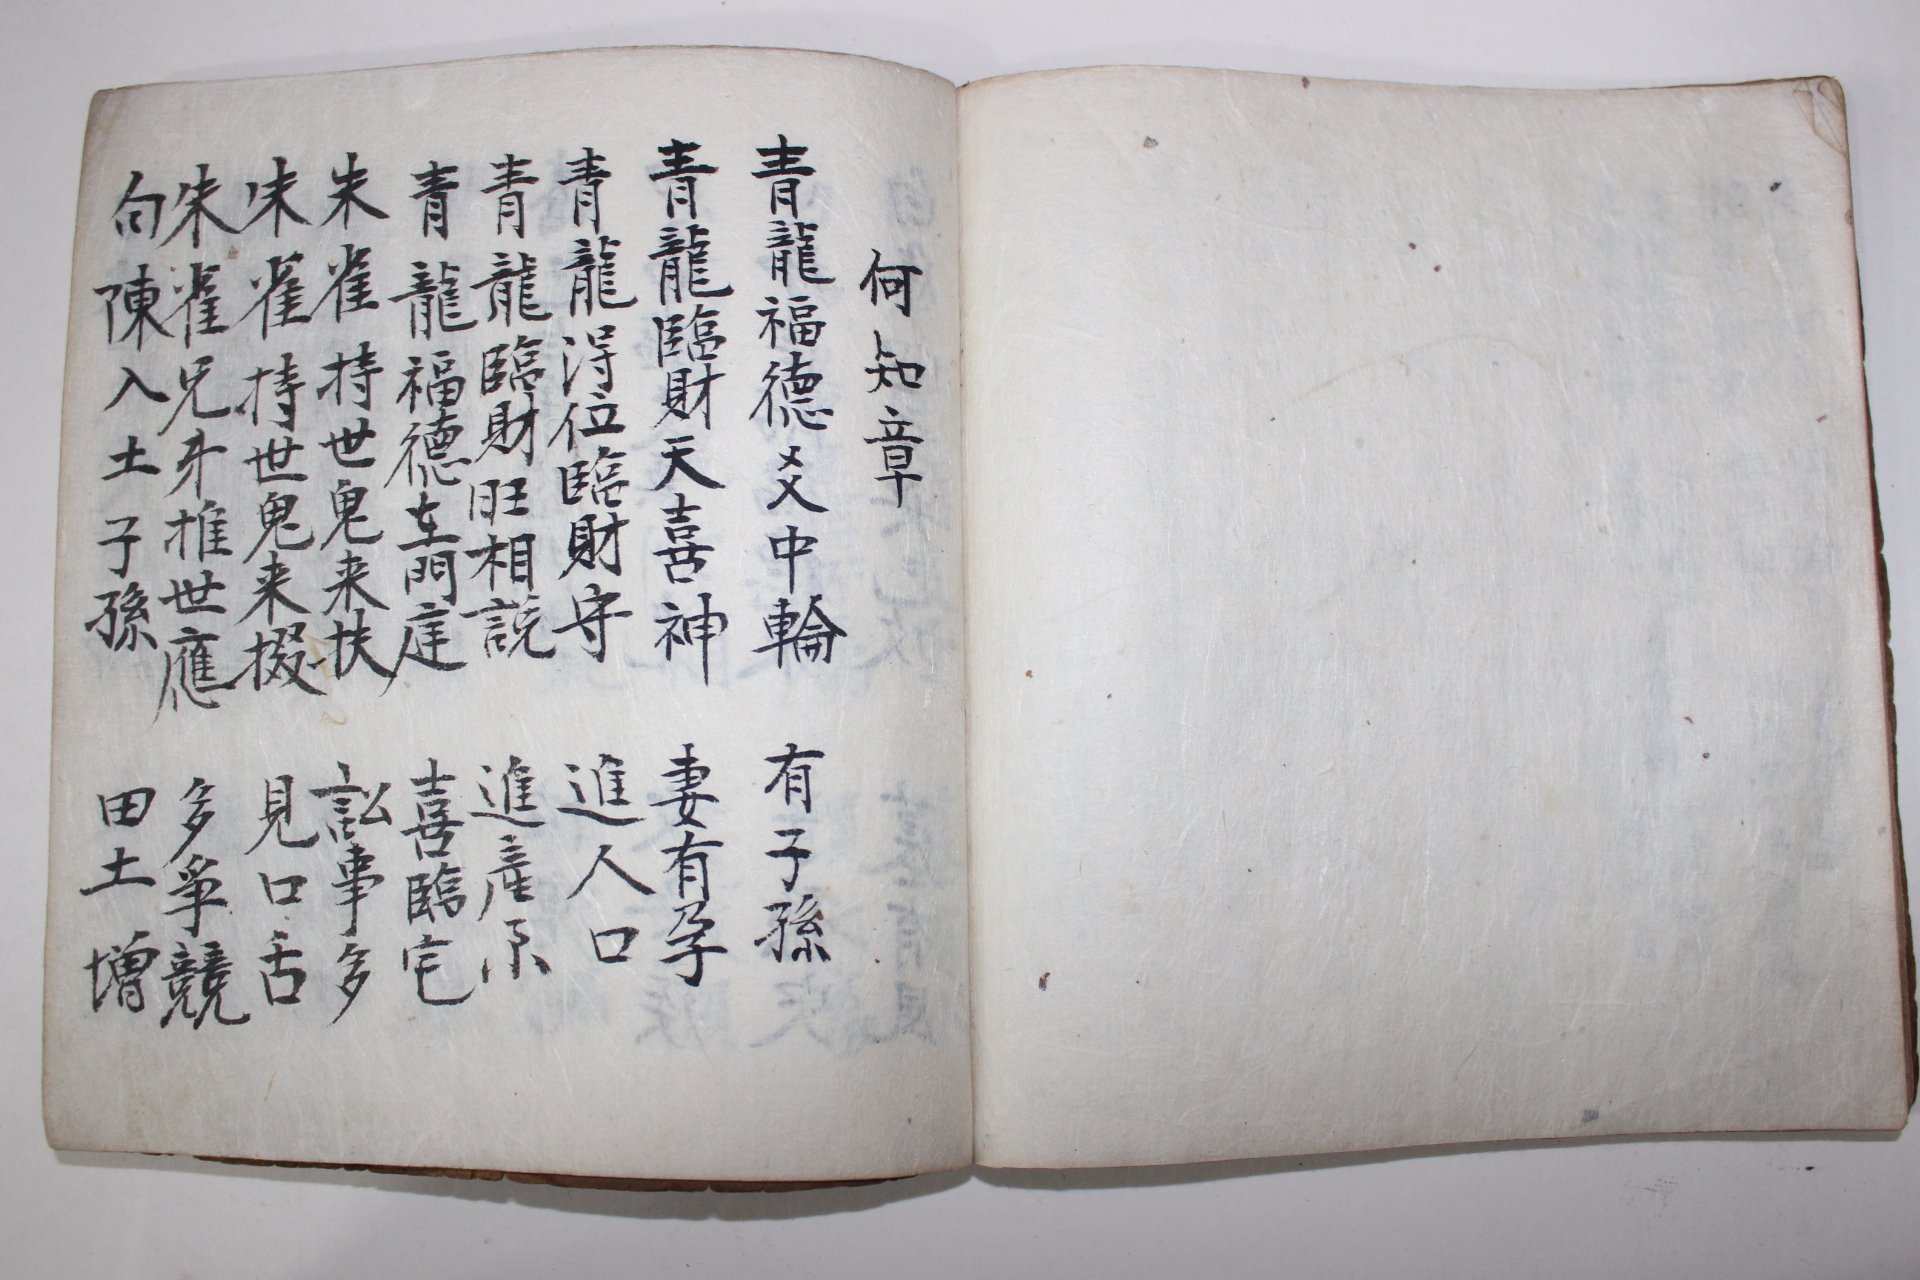 何知章
青龍福德爻中輪 有子孫
青龍臨財天喜神 妻有孕
青龍淂位臨財守 進人口
青龍臨財旺相說 進産
青龍福德在門庭 喜臨宅
朱雀持世鬼来扶 訟事多
朱雀持世鬼来掇 見口舌
朱雀兄弟推世應 多爭競
句陳入土子孫 田土增